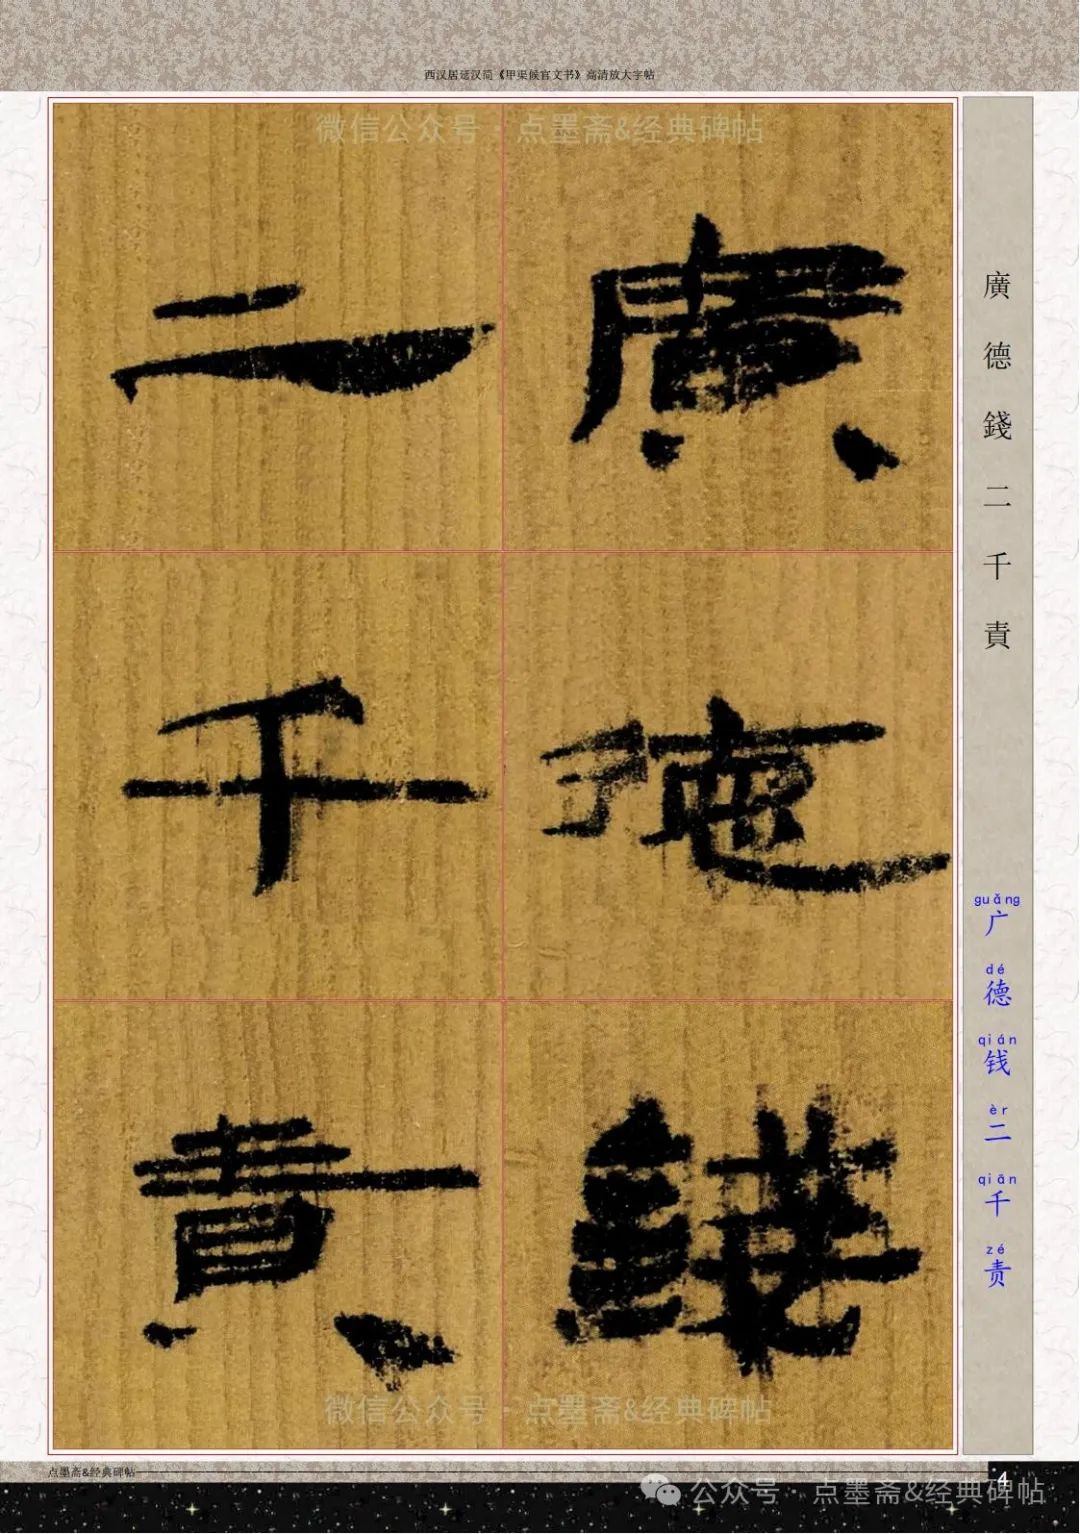 西汉居延汉简《甲渠候官文书》高清放大字帖
微信公众号·点墨斋&经典碑帖
廣德錢
二千責
廣德錢二千責
guǎng dé qián èr qiān zé
广德钱二千责
微信公众号·点墨斋&经典碑帖
点墨斋&经典碑帖
4
公众号·点墨斋&经典碑帖